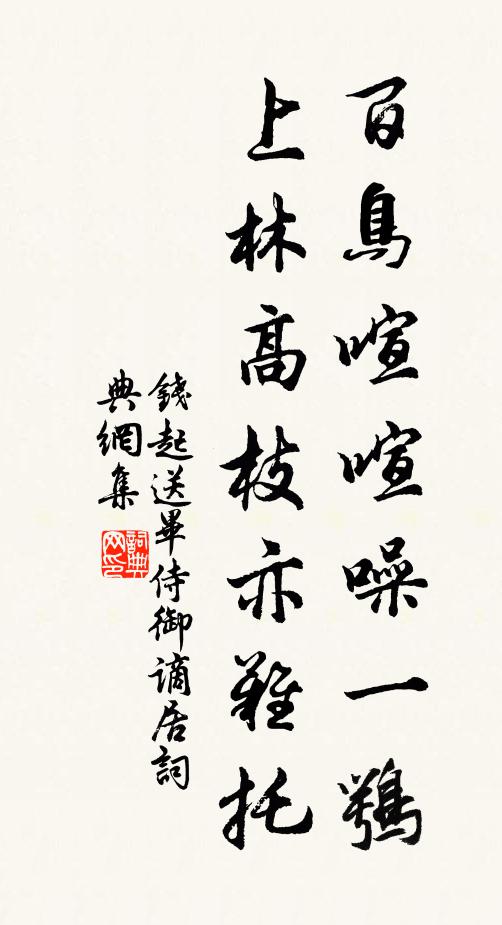 百鳥喧喧噪一鶚
上林高枝亦難托
錢起送畢侍御謫居詞
典網集
詞典
网印